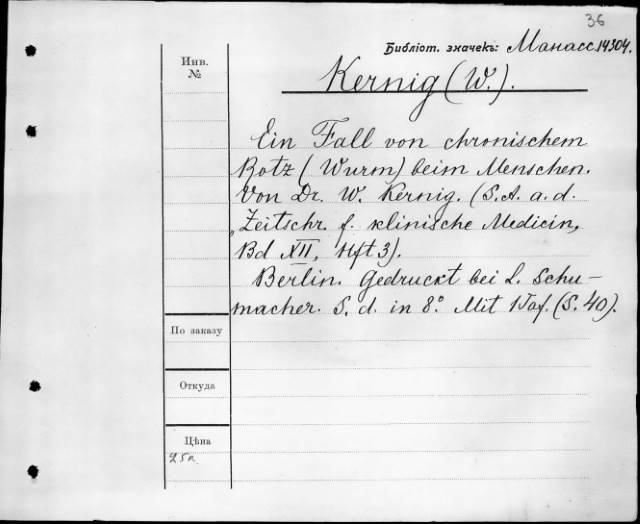 36
Библіот. значекъ: Манасс. 14304.
Инв.
№
Kernig (W.).
Ein Fall von chronischem
Rotz (Wurm) beim Menschen.
Von Dr. W. Kernig. (S.A. a. d.
„Zeitschr. f. klinische Medicin„
Bd XII, Hft 3).
Berlin. Gedruckt bei L. Schu-
macher. S. d. in 8.° Mit 1 Taf. (S. 40).
По заказу
Откуда
Цѣна
25к.